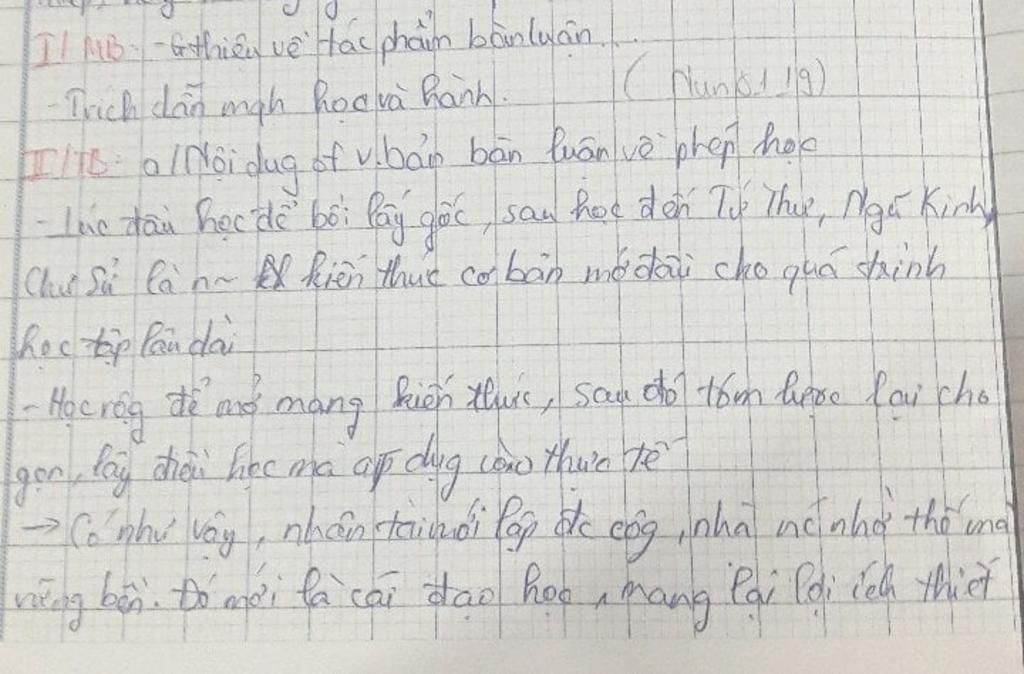 I/ MB: - Gthiệu về tác phẩm bàn luận...
- Trích dẫn mqh học và hành.
II/ TB: a/ Nội dug of v.bản bàn luận về phép học
- Lúc đầu học để bồi lấy gốc, sau học đến Tứ Thư, Ngũ Kinh,
Chư Sử là n~ kiến thức cơ bản mở đầu cho quá trình
học tập lâu dài
- Học rộg để mở mang kiến thức, sau đó tóm lược lại cho
gọn, lấy điều học mà áp dụg vào thực tế
→ Có như vậy, nhân tài mới lập đc côg, nhà nc nhờ thế mà
vững bền. Đó mới là cái đạo học, mang lại lợi ích thiết